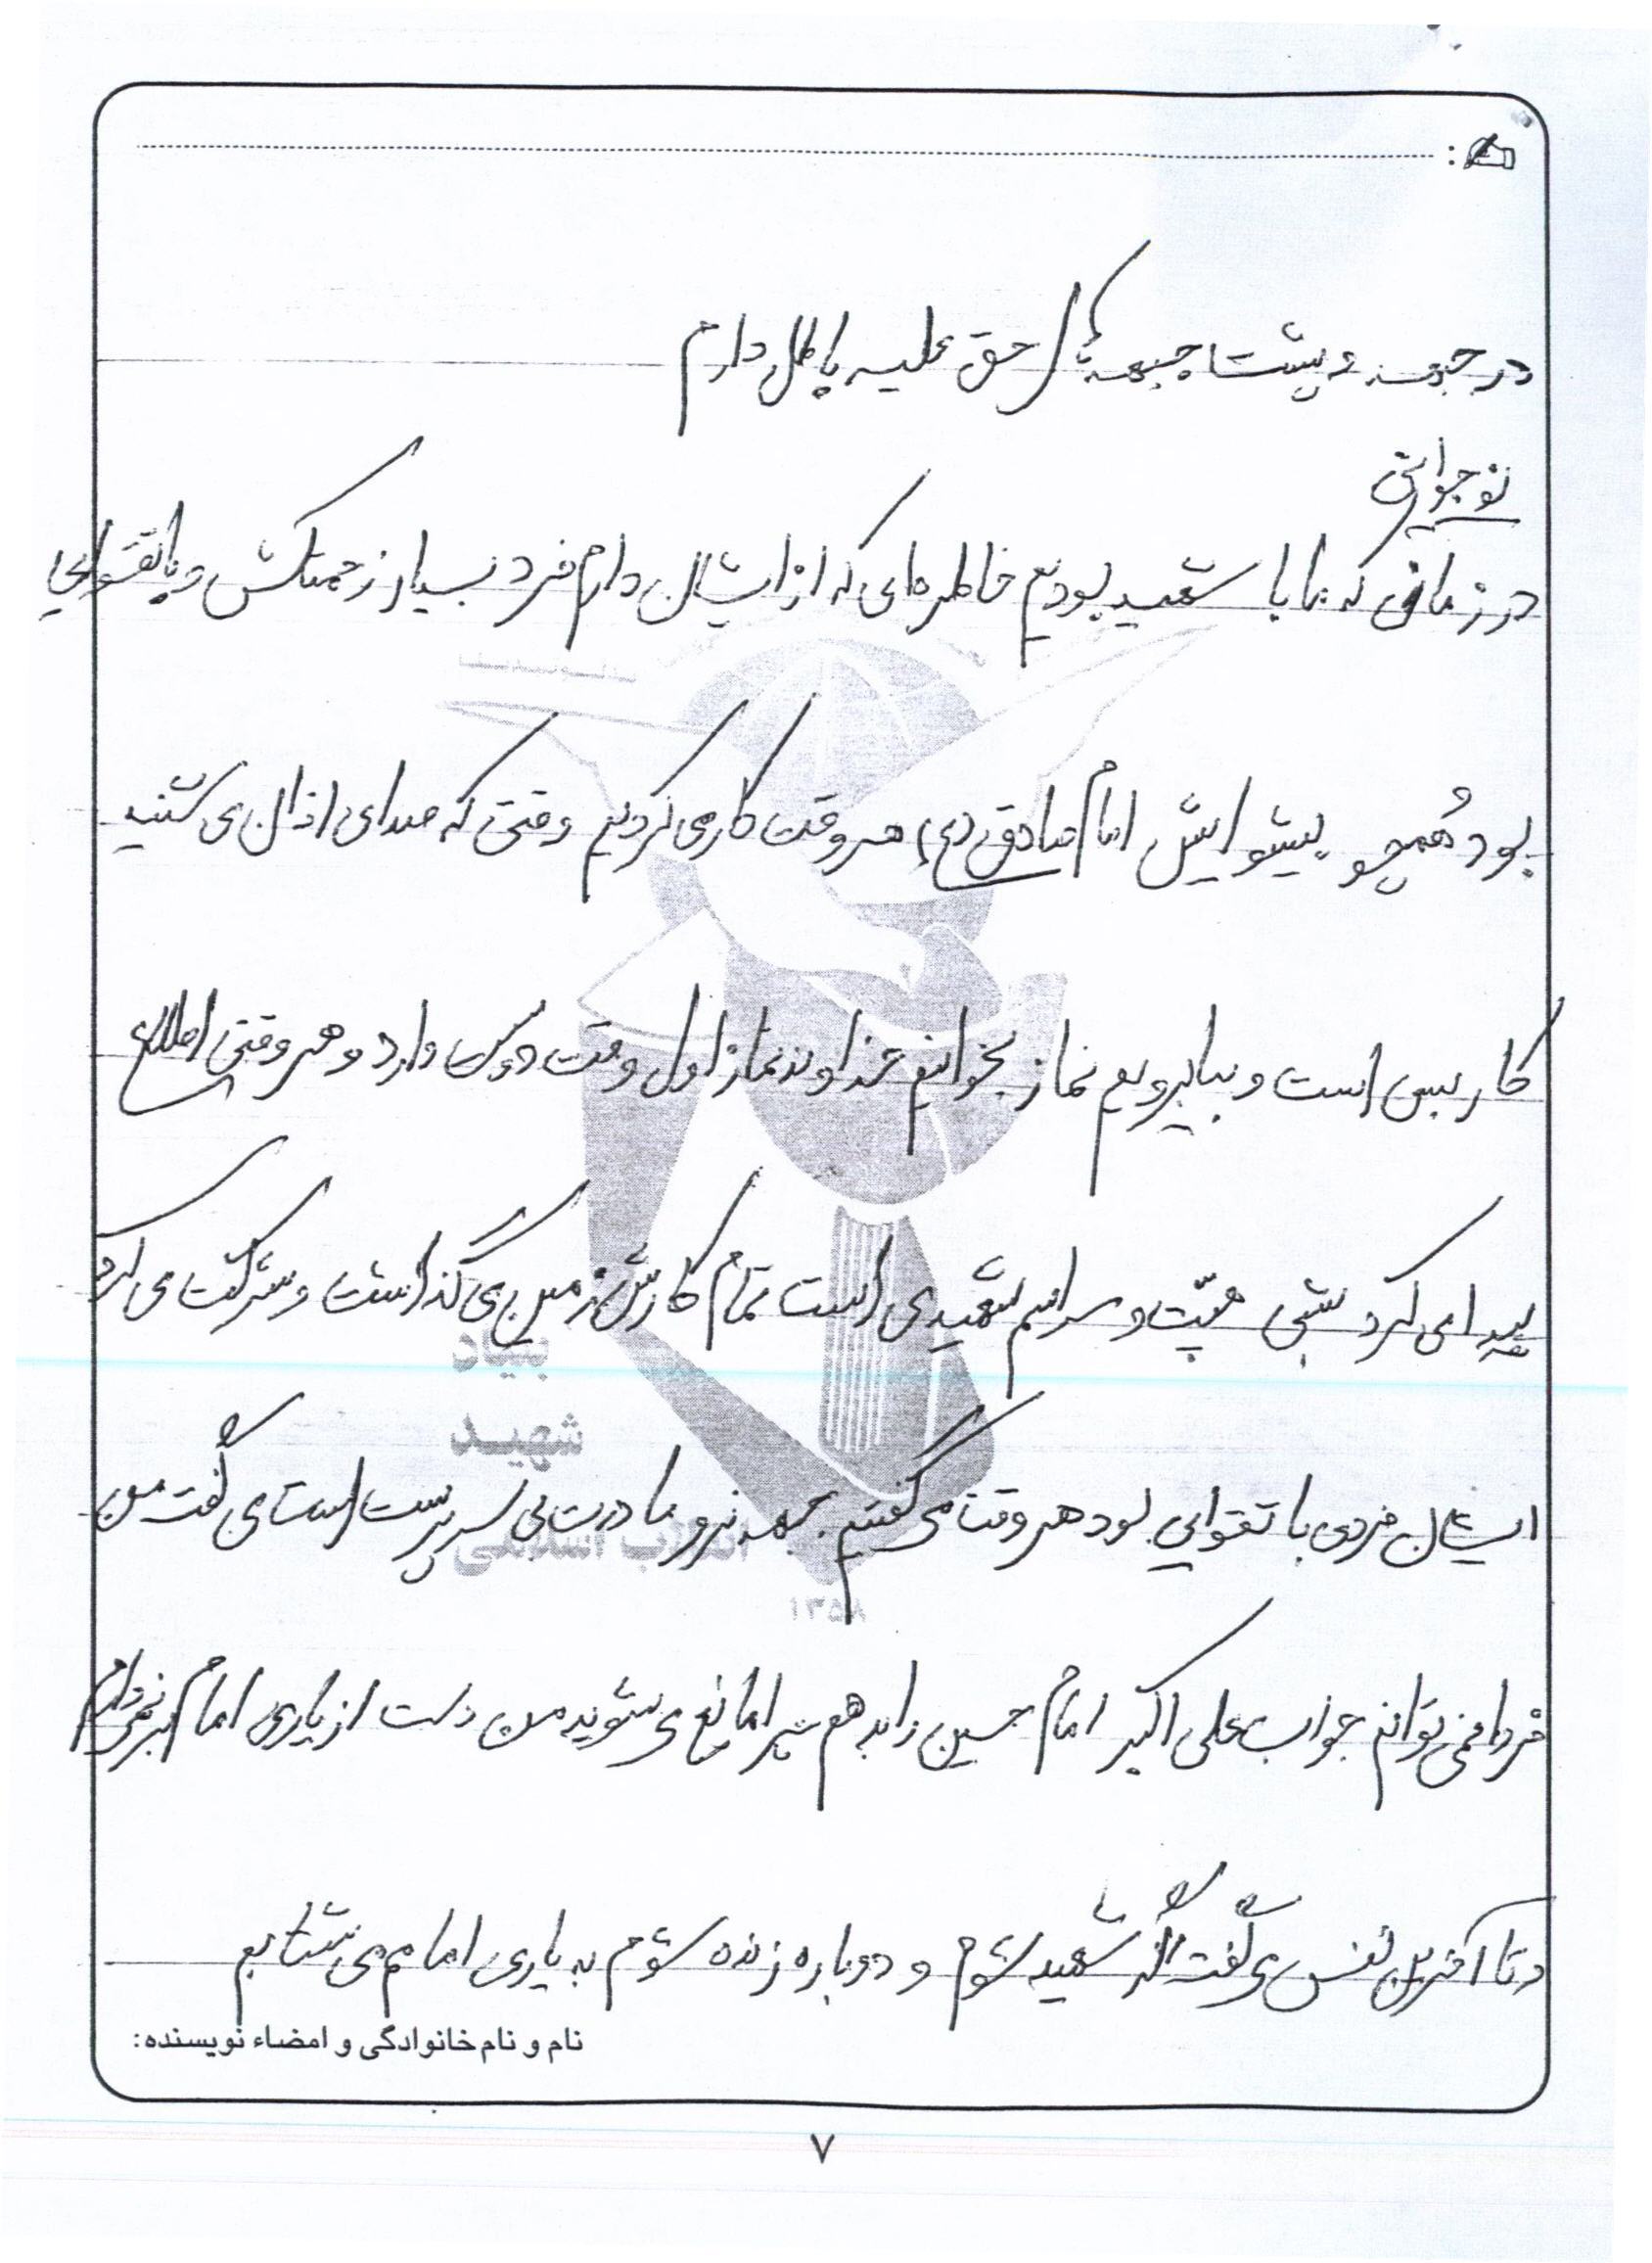 در جبهه و پشت جبهه‌های حق علیه باطل دارم
نوجوانی
در زمانی که ما با شهید بودیم خاطره‌ای که از ایشان دارم فرد بسیار زحمتکش و باتقوایی
بود و همچو پیشوایش امام صادق (ع) هر وقت کار می کردیم وقتی که صدای اذان می شنید
کار بس است و بیا برویم نماز بخوانیم خداوند نماز اول وقت دوست دارد و هر وقتی اطلاع
پیدا می کرد شبی هیئت و مراسم شهیدی است تمام کارش زمین می گذاشت و شرکت می کرد
ایشان فردی با تقوایی بود هر وقت می گفتیم جبهه نرو مادرت بی سرپرست است می گفت من
فردا نمی توانم جواب علی اکبر امام حسین را بدهم چرا مانع می شوید من دست از یاری امام بر نمی دارم
و تا آخرین نفس می گفت اگر شهید شوم و دوباره زنده شوم به یاری امام می شتابم
بنیاد
شهید
انقلاب اسلامی
۱۳۵۸
نام و نام خانوادگی و امضاء نویسنده:
۷